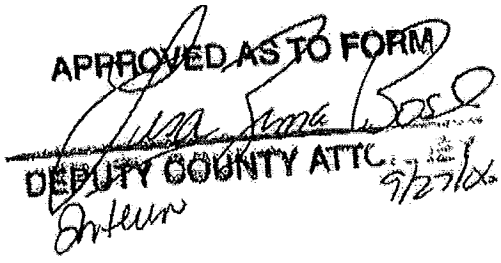 APPROVED AS TO FORM
Lisa Bosl
DEPUTY COUNTY ATTC
9/27/06
Interim